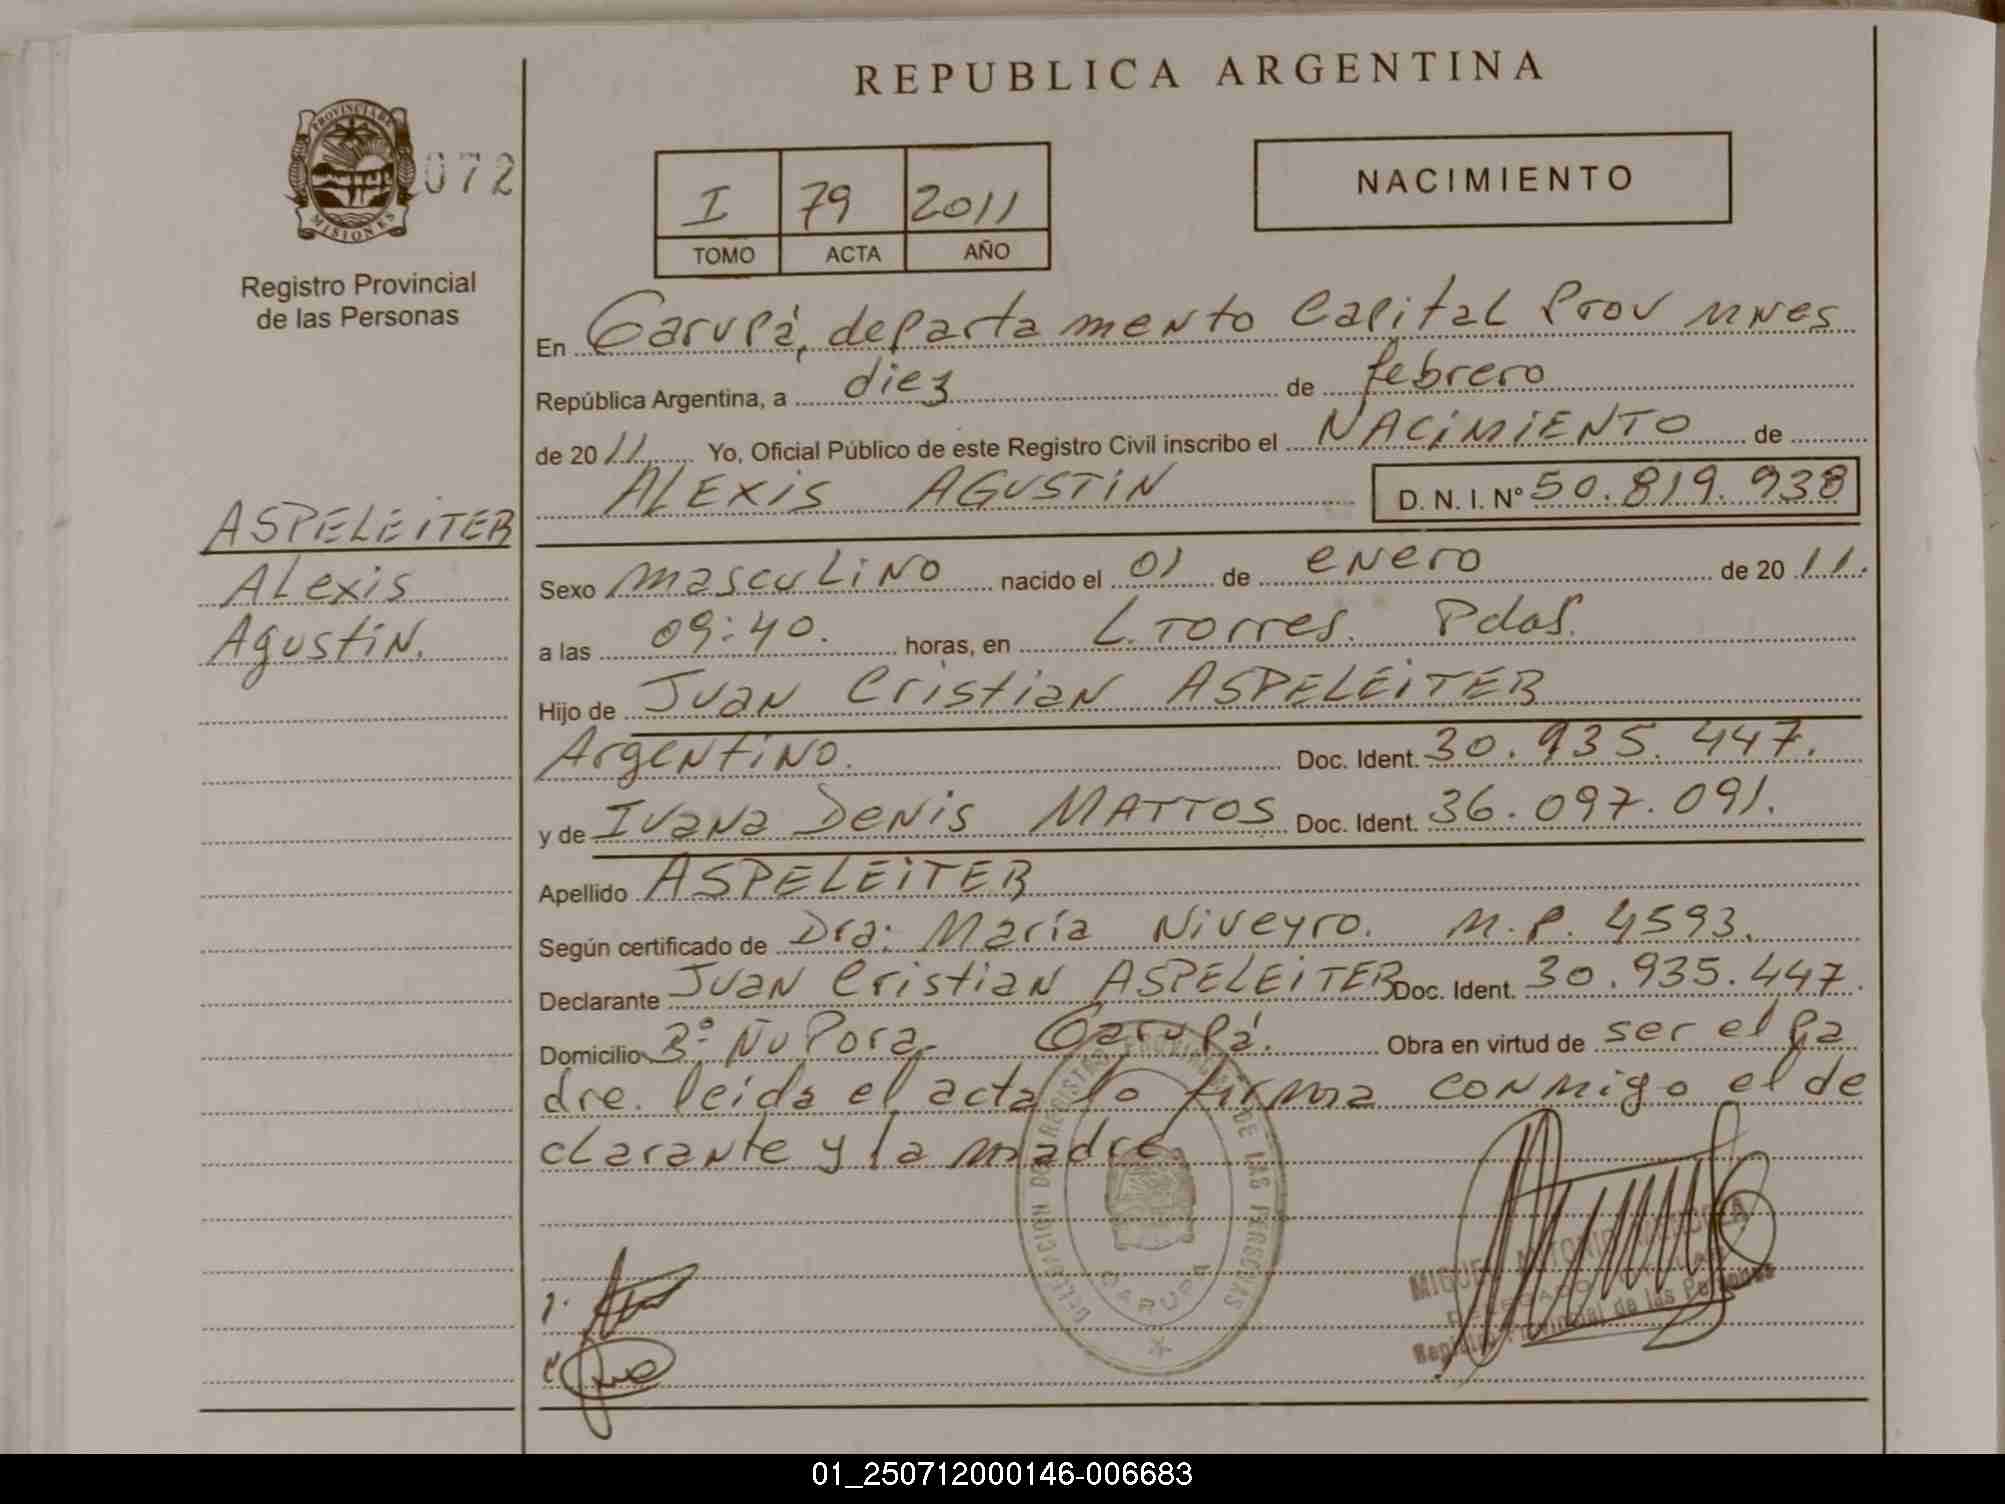 REPUBLICA ARGENTINA
PROVINCIA DE
MISIONES
072
Registro Provincial
de las Personas
I 79 2011
TOMO ACTA AÑO
NACIMIENTO
En Garupá, departamento Capital Prov Mnes
República Argentina, a diez de febrero
de 2011 Yo, Oficial Público de este Registro Civil inscribo el NACIMIENTO de
ALEXIS AGUSTIN D. N. I. N° 50.819.938
ASPELEITER
Alexis
Agustin.
Sexo masculino nacido el 01 de enero de 2011.
a las 09:40. horas, en L. Torres. Pdas.
Hijo de Juan Cristian ASPELEITER
Argentino. Doc. Ident. 30.935.447.
y de Ivana Denis MATTOS Doc. Ident. 36.097.091.
Apellido ASPELEITER
Según certificado de Dra: María Niveyro. M.P. 4593.
Declarante Juan Cristian ASPELEITER Doc. Ident. 30.935.447.
Domicilio B° Ñu Pora Garupá. Obra en virtud de ser el pa
dre. leida el acta lo firma conmigo el de
clarante y la madre
DELEGACION DEL REGISTRO PROVINCIAL DE LAS PERSONAS
GARUPA
MIGUEL ANTONIO
DELEGADO TITULAR
Registro Provincial de las Personas
1.
01_250712000146-006683